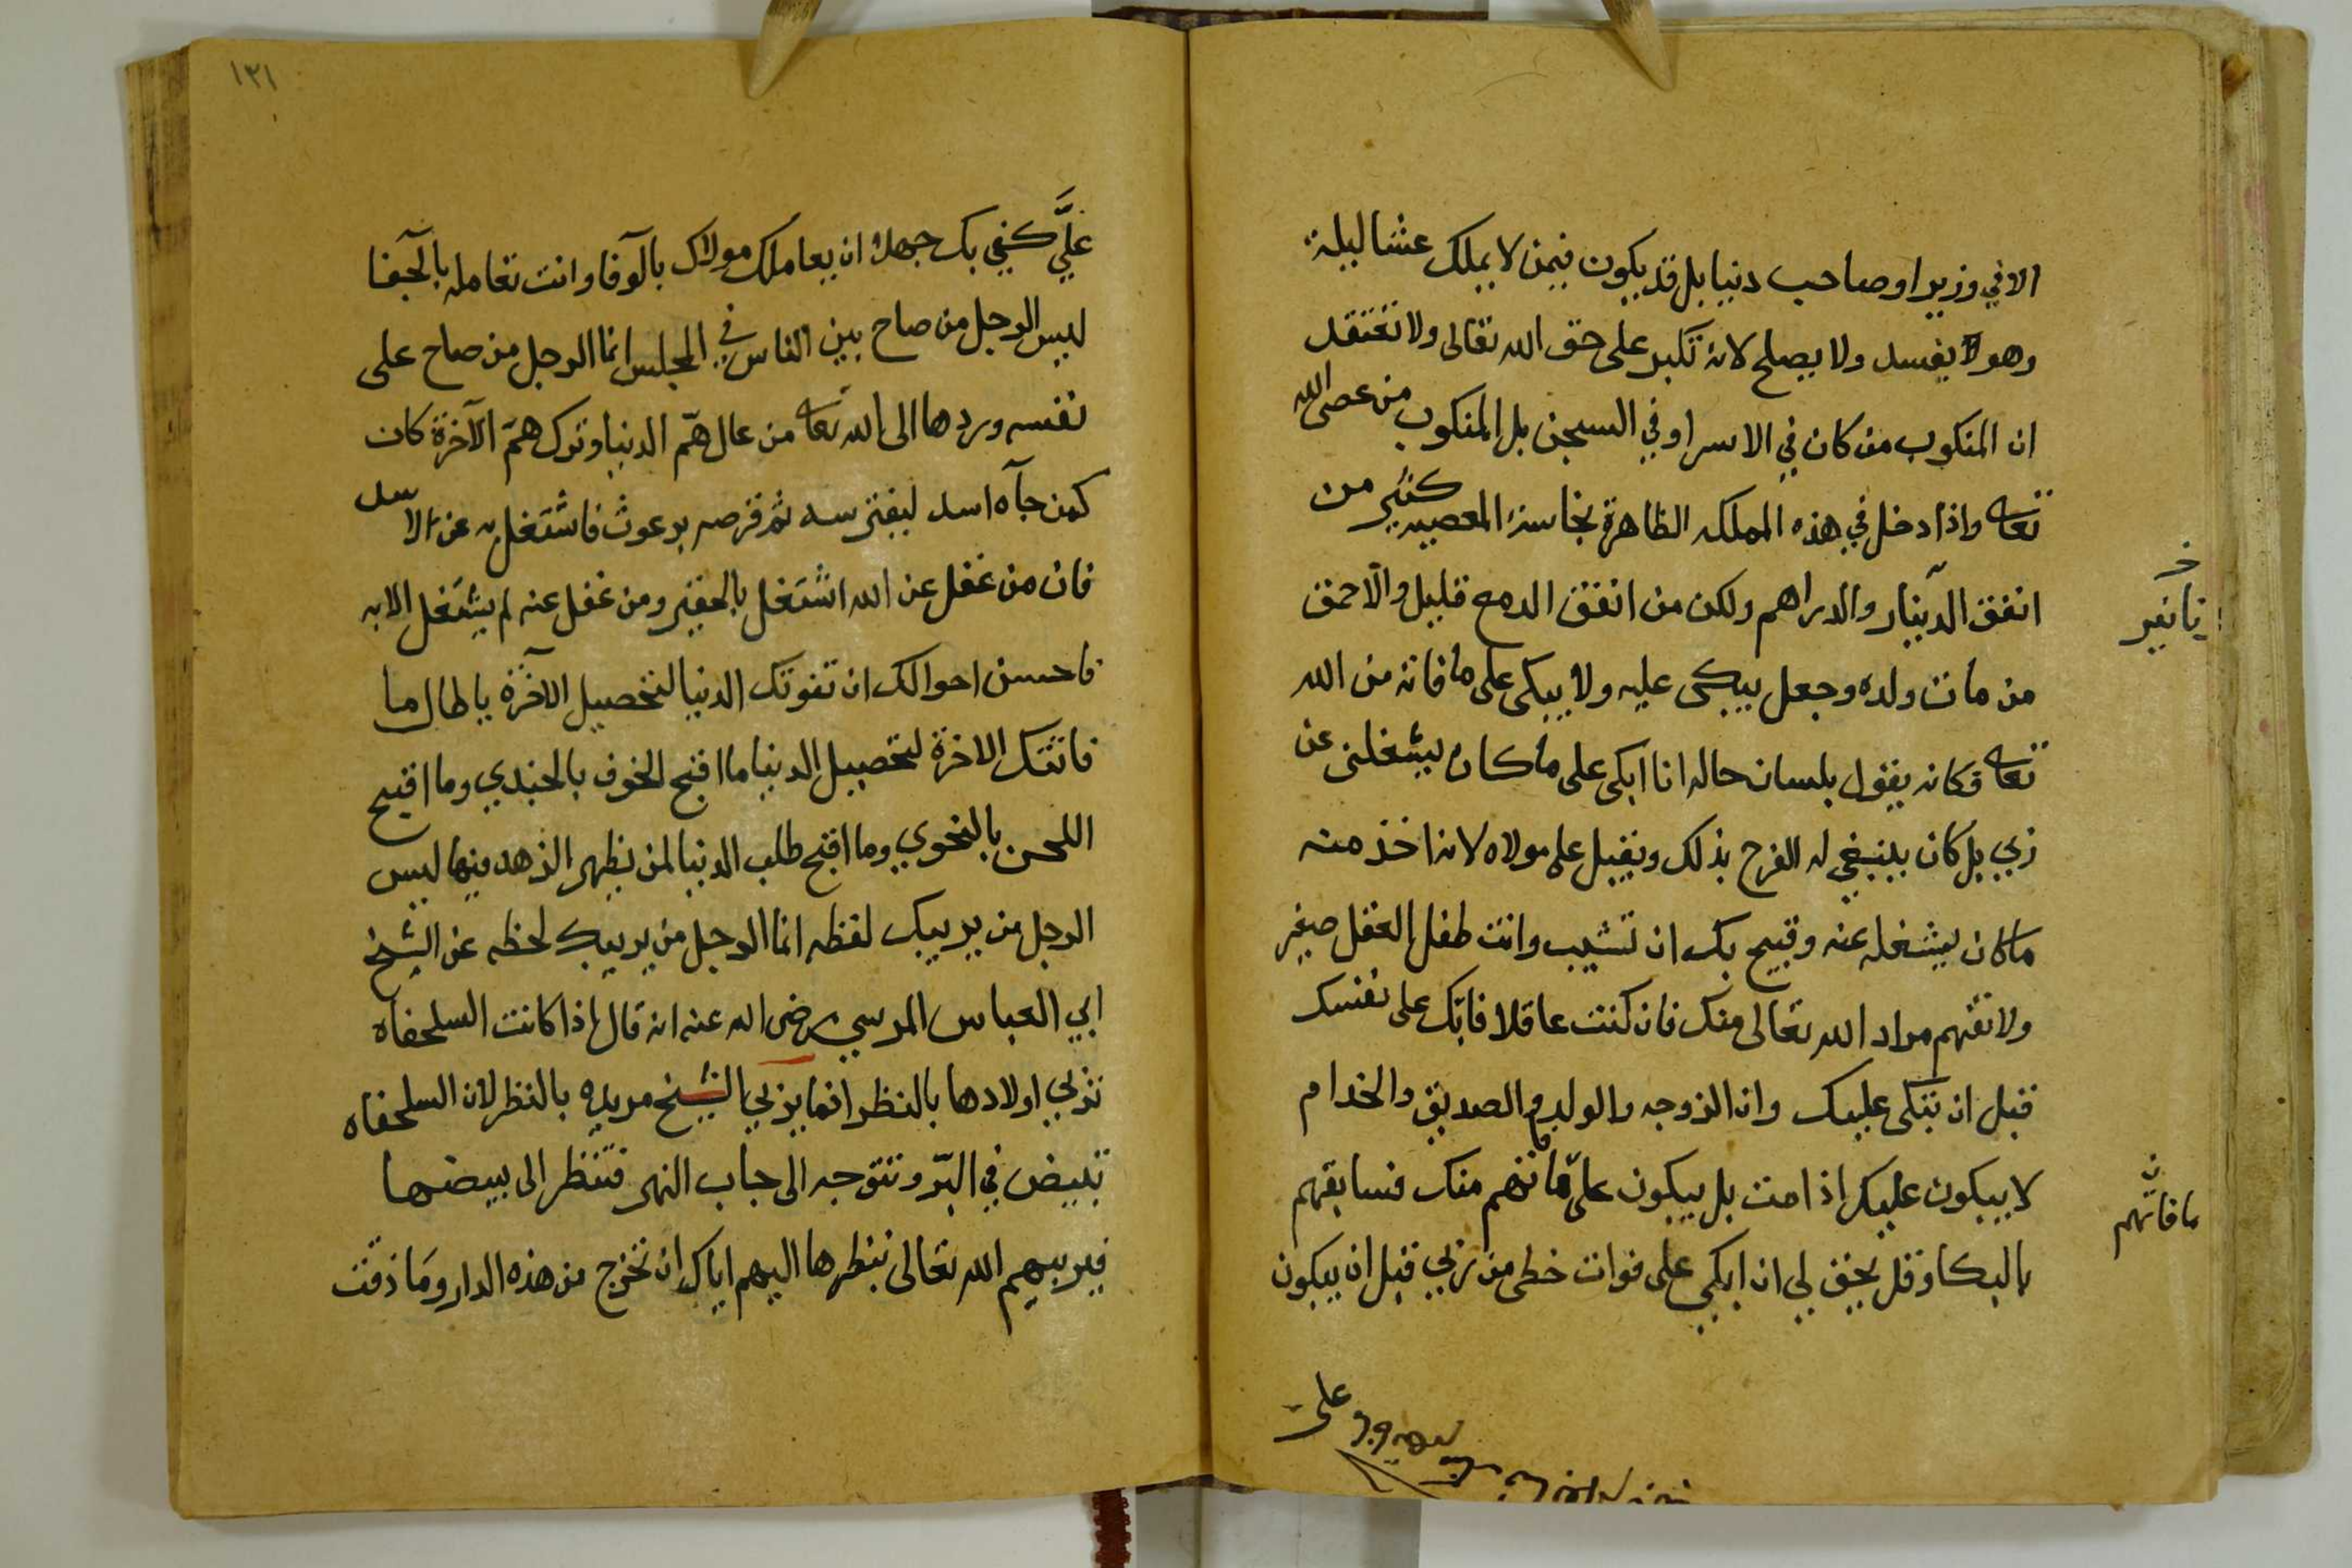 الا في وزير او صاحب دنيا بل قد يكون فيمن لا يملك عشا ليلة
وهو لا يفسد ولا يصلح لانه تكبر على حق الله تعالى ولا تعتقد
ان المنكوب من كان في الاسر او في السجن بل المنكوب من عصى الله
تعالى واذا دخل في هذه المملكه الظاهرة نجاسة المعصيه كثير من
انفق الدينار والدراهم ولكن من انفق الدمع قليل والاحمق
من مات ولده وجعل يبكى عليه ولا يبكى على ما فاته من الله
تعالى فكانه يقول بلسان حاله انا ابكى على ما كان يشغلنى عن
ربي بل كان ينبغي له الفرح بذلك ويقبل على مولاه لانه اخذ منه
ما كان يشغله عنه وقبيح بك ان تشيب وانت طفل العقل صغير
ولا تفهم مراد الله تعالى منك فان كنت عاقلا فابك على نفسك
قبل ان يبكى عليك وان الزوجه والولد والصديق والخدام
لا يبكون عليك اذا مت بل يبكون على ما فاتهم منك فسابقهم
بالبكا وقل يحق لى ان ابكي على فوات حظى من ربي قبل ان يبكون
نانير
ما فاتهم
على
١٣١
عليَّ كفي بك جهلا ان يعاملك مولاك بالوفا وانت تعامله بالجفا
ليس الرجل من صاح بين الناس في المجلس انما الرجل من صاح على
نفسه وردها الى الله تعالى من عال همّ الدنيا وترك همّ الآخرة كان
كمن جآه اسد ليفترسه ثم قرصه برغوث فاشتغل به عن الاسد
فان من غفل عن الله اشتغل بالحقير ومن غفل عنه لم يشتغل الا به
فاحسن احوالك ان تفوتك الدنيا لتحصيل الآخرة يا طال ما
فاتتك الاخرة لتحصيل الدنيا ما اقبح الخوف بالجندي وما اقبح
اللحن بالنحوي وما اقبح طلب الدنيا لمن يظهر الزهد فيها ليس
الرجل من يربيك لفظه انما الرجل من يربيك لحظه عن الشيخ
ابي العباس المرسي رضى الله عنه انه قال اذا كانت السلحفاه
تربي اولادها بالنظر انما يربي الشيخ مريده بالنظر لان السلحفاه
تبيض في البرّ وتتوجه الى جاب النهر فتنظر الى بيضها
فيربيهم الله تعالى بنظرها اليهم اياك ان تخرج من هذه الدار وما ذقت